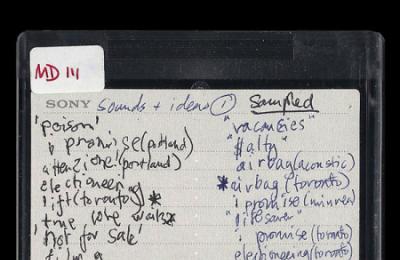 MD 111
SONY sounds + ideas ① sampled
'poison'
i promise (portland)
attenzione! (portland)
electioneering
lift (toronto) *
true love waits *
'Not for sale'
"vacancies"
airbag (acoustic)
*airbag (toronto)
i promise (
"lifesaver"
i promise (toronto)
electioneering (toronto)